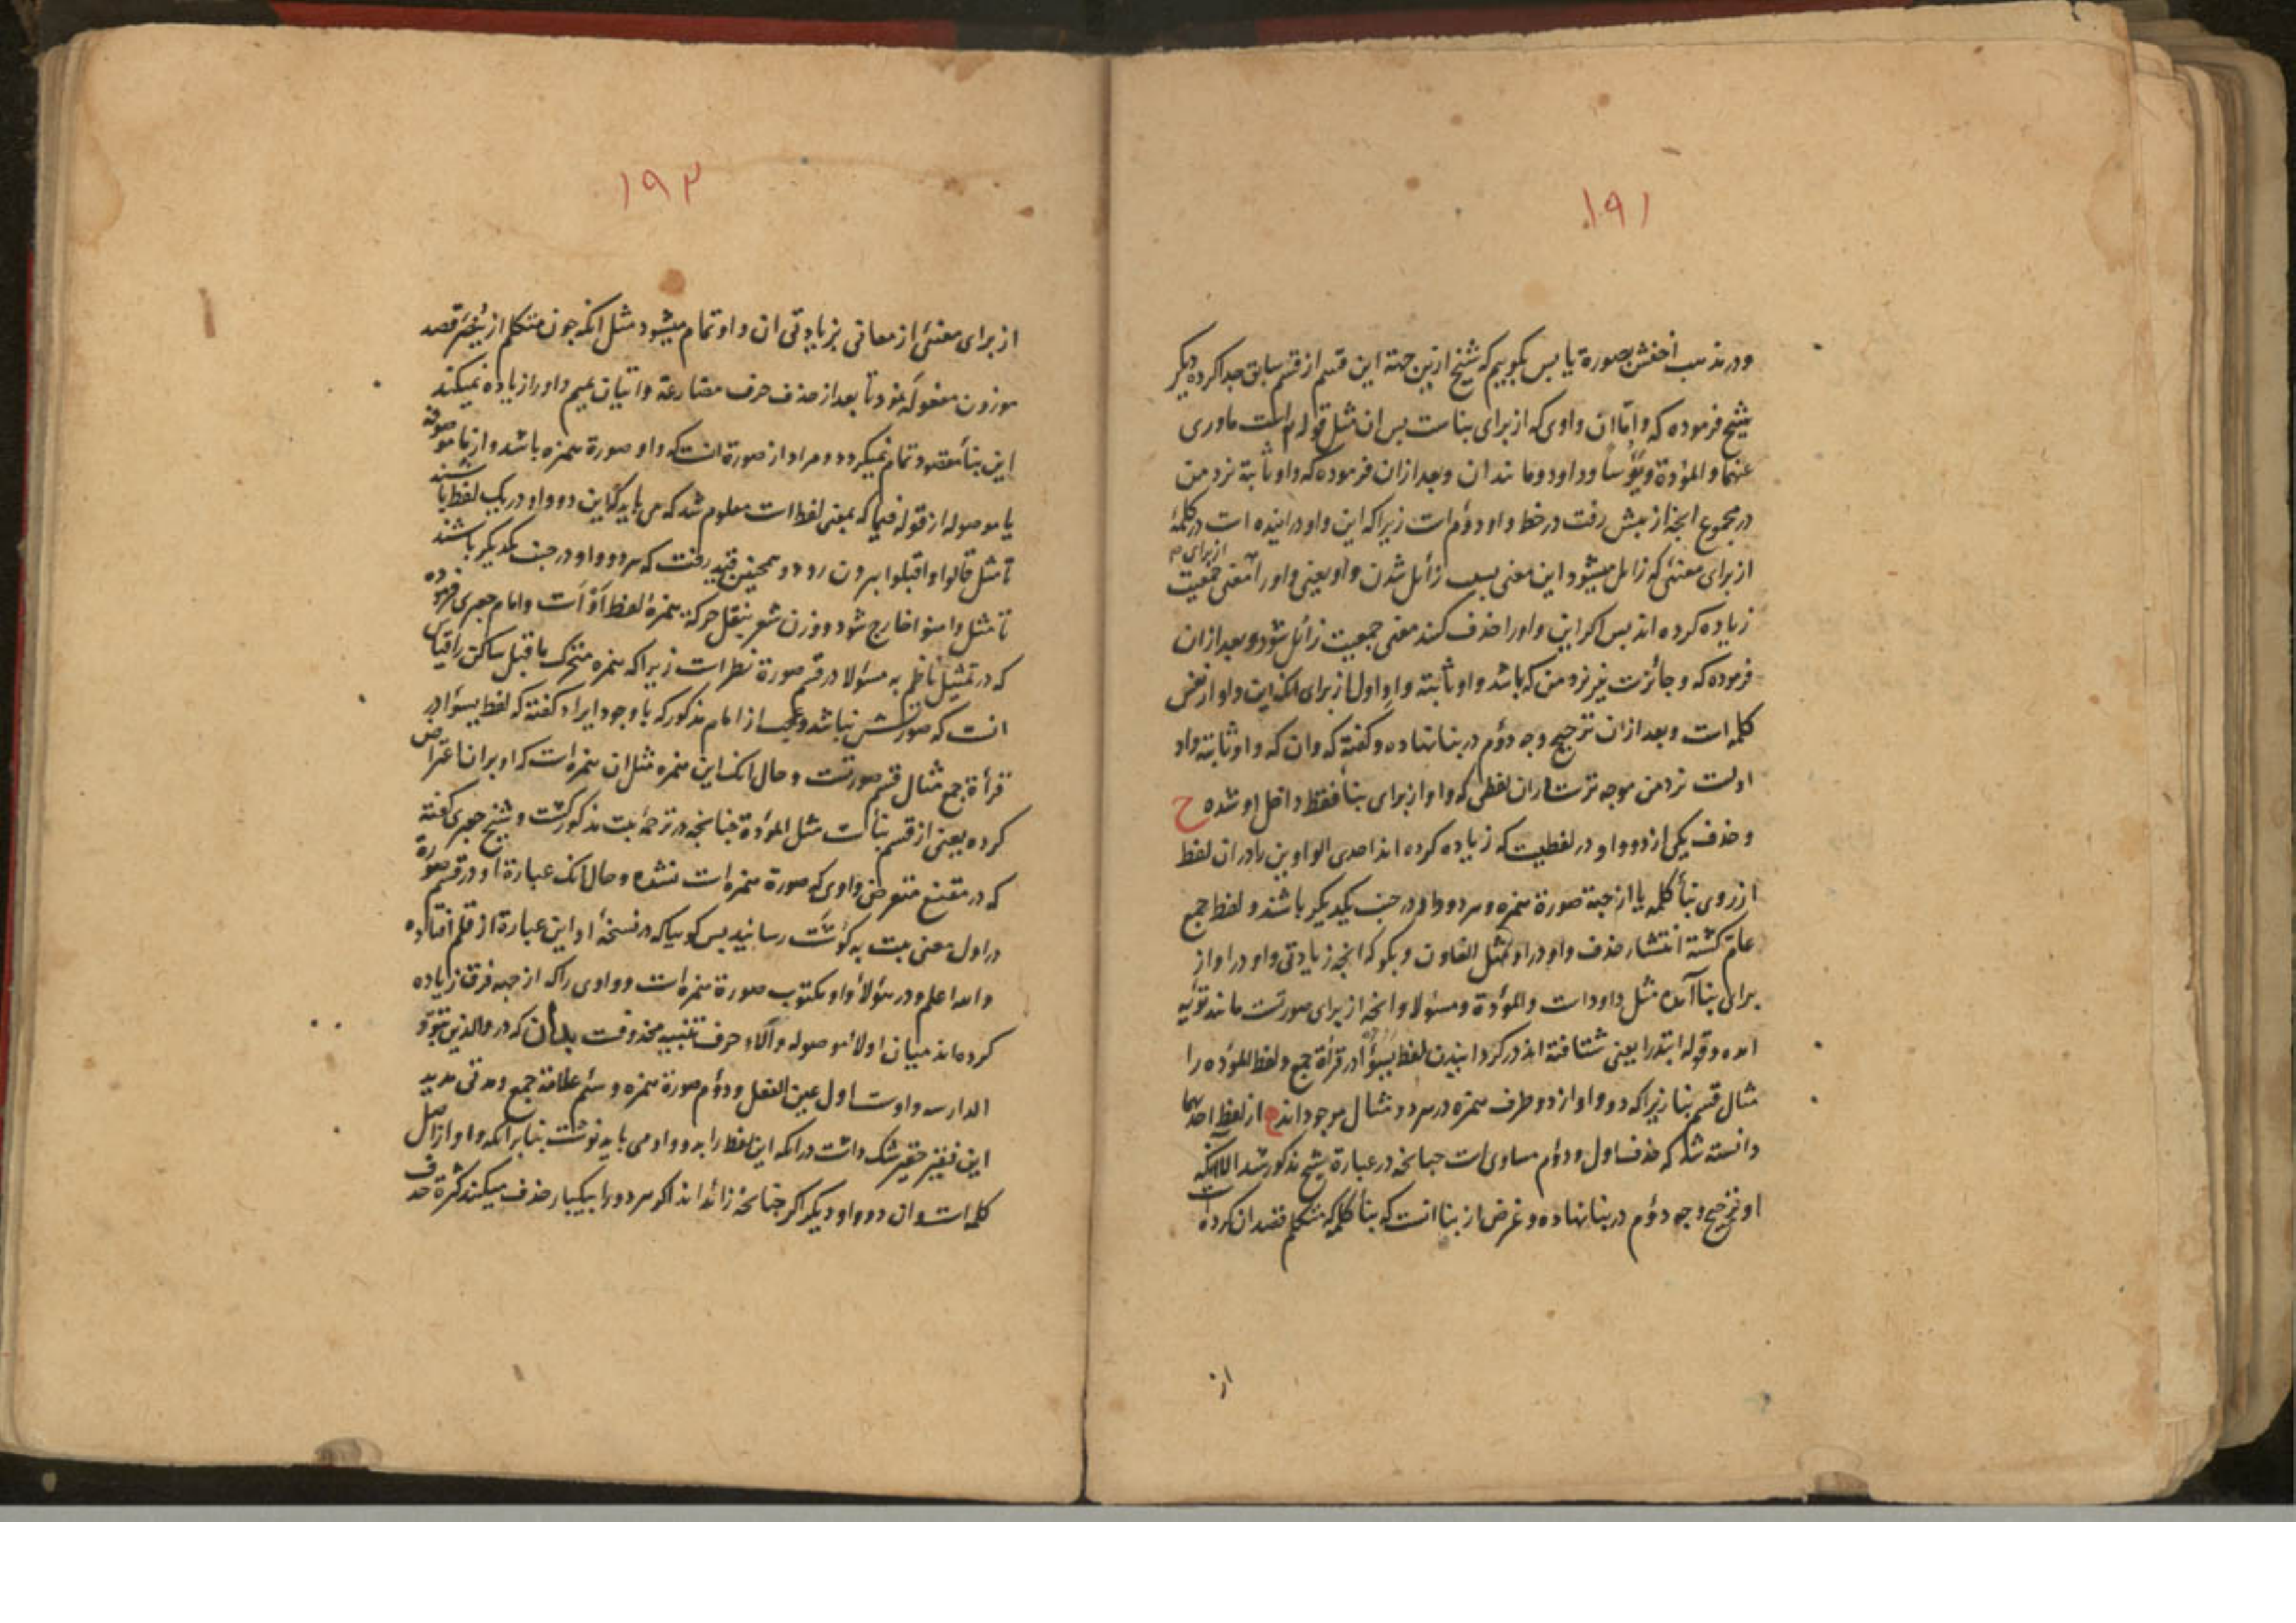 ١٩١
ودر مذهب اخفش بصورة یا پس بکوییم که شیخ ازین جهة این قسم از قسم سابق جدا کرده دیکر
شیخ فرموده که واما ان واوی که از برای بناست پس ان مثل قوله است ماوری
عنهما والمؤدة ویؤسا وداود ومانند ان وبعد ازان فرموده که واو ثابتة نزد من
در مجموع انچه از پیش رفت در خط واو دؤم است زیرا که این واو در اینده است در کلمۀ
از برای معنئی که زایل میشود این معنی بسبب زائل شدن واو یعنی واو را از برای معنی جمعیت
زیاده کرده اند پس اکر این واو را حذف کنند معنی جمعیت زائل شود وبعد ازان
فرموده که وجائزست نیز نزد من که باشد واو ثابتة واو اول از برای انک این واو از نفس
کلمه است وبعد ازان ترجیح وجه دؤم در بنا نهاده وکفته که وان که واو ثابتة واو
اولست نزد من موجه ترست دران لفظی که واو از برای بنا فقط داخل او شده ح
وحذف یکی از دو واو در لفظیست که زیاده کرده اند احدی الواوین را دران لفظ
از روی بنأ کلمه یا از جهة صورة همزه وهر دو واو در جنب یکدیکر باشند ولفظ جمع
عام کشتة انتشار حذف واو در او مثل الغاون وبکو که انچه زیادتی واو در او از
برای بنا آمده مثل داود است والمؤدة ومسئولا وانچه از برای صورتست مانند تؤیه
امده وقوله ابتدرا یعنی شتافتة اند در کردانیدن لفظ یسؤا در قرأة جمع ولفظ المؤده را
مثال قسم بنا زیرا که دو واو از دو طرف همزه در هر دو مثال موجوداند ح از لفظ احدیهما
دانسته شد که حذف اول ودؤم مساوی است چنانچه در عبارة شیخ مذکور شد الا انکه
او ترجیح وجه دؤم در بنا نهاده وغرض از بنا انست که بنا کلمه که متکلم قصد ان کرده است
از
١٩٢
از برای معنئی از معانی بزیادتی ان واو تمام میشود مثل انکه چون متکلم از ینصر قصد
موزون مفعول نمود تا بعد از حذف حرف مضارعة واتیان بمیم واو را زیاده نمیکند
این بنأ مقصود تمام نمیکردد ومراد از صورة انست که واو صورة همزه باشد واز ما موصوفة
یا موصوله از قوله فیما که بمعنی لفظ است معلوم شد که می باید که این دو واو در یک لفظ باشند
تا مثل قالوا واقبلوا بیرون رود وهمچنین قید رفت که هر دو واو در جنب یکدیکر باشند
تا مثل وامنوا خارج شود ووزن شعر بنقل حرکة همزۀ لفظ اؤ است وامام جعبری فرموده
که در تمثیل ناظم به مسؤلا در قسم صورة نظر است زیرا که همزه متحرک ماقبل ساکن را قیاس
انست که صورتش نباشد وعجب از امام مذکور که با وجود ایراد کفتة که لفظ یسؤا در
قرأة جمع مثال قسم صورتست وحال انک این همزه مثل ان همزه است که او بران اعتراض
کرده یعنی از قسم بنأست مثل المؤدة چنانچه در ترجمۀ بیت مذکور کشت وشیخ جعبری کفتة
که در مقنع متعرض واوی که صورة همزه است نشده وحال انک عبارة او در قسم صورة
در اول معنی بیت به کوشت رسانید پس کوییا که در نسخۀ او این عبارة از قلم افتاده
والله اعلم ودر هؤلأ واو مکتوب صورة همزه است وواوی را که از جهة فرق زیاده
کرده اند میان اولأ موصوله والاء حرف تنبیه محذوفست بدان که در والذین تبوؤ
الدار سه واوست اول عین الفعل ودؤم صورة همزه وسئم علامة جمع ومدتی مدید
این فقیر حقیر شک داشت درانکه این لفظ را بدو واو می باید نوشت بنابرانکه واو از اصل
کلمه است وان دو واو دیکر اکر چنانچه زائد اند اکر هر دو را بیکبار حذف میکنند کثرة حذف